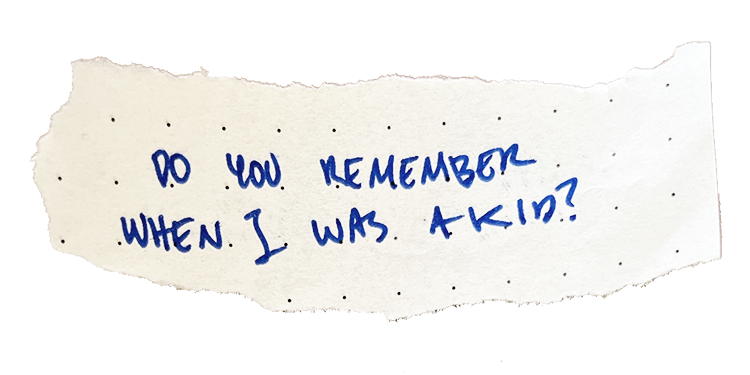 DO YOU REMEMBER
WHEN I WAS A KID?